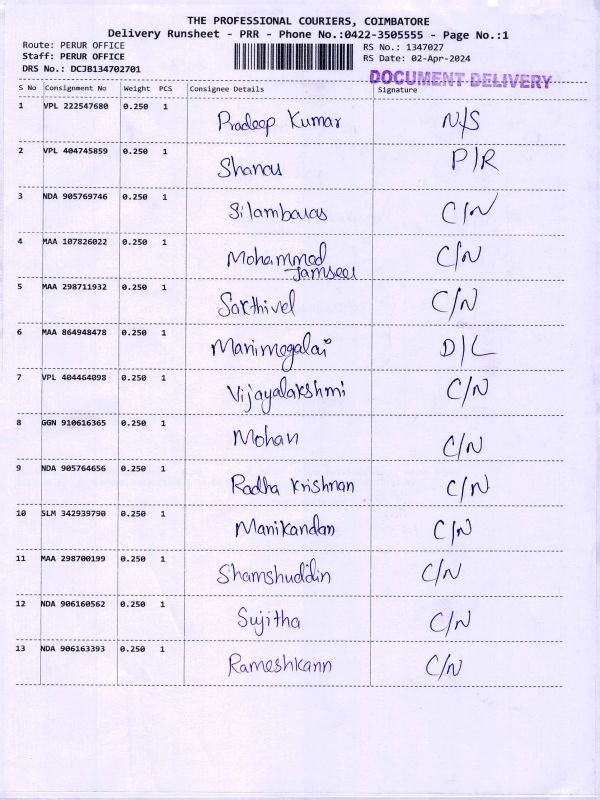 THE PROFESSIONAL COURIERS, COIMBATORE
Delivery Runsheet - PRR - Phone No.:0422-3505555 - Page No.:1
Route: PERUR OFFICE RS No.: 1347027
Staff: PERUR OFFICE RS Date: 02-Apr-2024
DRS No.: DCJB134702701
DOCUMENT DELIVERY
S No Consignment No Weight PCS Consignee Details Signature
1 VPL 222547680 0.250 1 Pradeep Kumar N/S
2 VPL 404745859 0.250 1 Shanas P/R
3 NDA 905769746 0.250 1 Silambaras C/N
4 MAA 107826022 0.250 1 Mohammod C/N
Jamseer
5 MAA 298711932 0.250 1 Sakthivel C/N
6 MAA 864948478 0.250 1 Manimegalai D/L
7 VPL 404464098 0.250 1 Vijayalakshmi C/N
8 GGN 910616365 0.250 1 Mohan C/N
9 NDA 905764656 0.250 1 Radha Krishnan C/N
10 SLM 342939790 0.250 1 Manikandan C/N
11 MAA 298700199 0.250 1 Shamshuddin C/N
12 NDA 906160562 0.250 1 Sujitha C/N
13 NDA 906163393 0.250 1 Rameshkann C/N